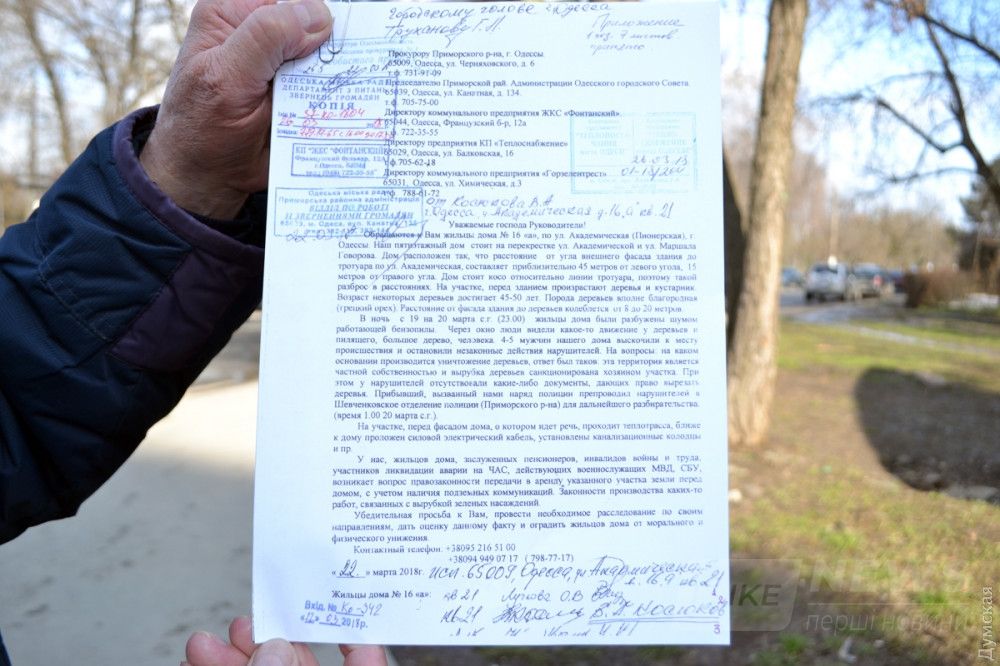 Городскому голове г. Одесса
Труханову Г.Л.
Приложение
1 экз. 7 листов
Прокурору Приморского р-на, г. Одессы
65009, Одесса, ул. Черняховского, д. 6
т.ф. 731-91-09
Председателю Приморской рай. Администрации Одесского городского Совета
65039, Одесса, ул. Канатная, д. 134.
т.ф. 705-75-00
Директору коммунального предприятия ЖКС «Фонтанский»
65044, Одесса, Французский б-р, 12а
т.ф. 722-35-55
Директору предприятия КП «Теплоснабжение»
65029, Одесса, ул. Балковская, 16
т.ф.705-62-18
Директору коммунального предприятия «Горзелентрест»
65031, Одесса, ул. Химическая, д.3
т.ф. 788-61-72
ОДЕСЬКА МІСЬКА РАДА
ДЕПАРТАМЕНТ З ПИТАНЬ
ЗВЕРНЕНЬ ГРОМАДЯН
КОПІЯ
КП "ЖКС "ФОНТАНСЬКИЙ"
Французький бульвар, 12А
г.Одесса, 65044
тел.(048) 722-35-55
Одеська міська рада
Приморська районна адміністрація
ВІДДІЛ ПО РОБОТІ
ІЗ ЗВЕРНЕННЯМИ ГРОМАДЯН
65039, м. Одеса, вул. Канатна, 134
26.03.18
от Косюкова В.А
г. Одесса, ул Академическая д. 16 „а" кв. 21
Уважаемые господа Руководители!
Обращаются к Вам жильцы дома № 16 «а», по ул. Академической (Пионерская), г.
Одессы. Наш пятиэтажный дом стоит на перекрестке ул. Академической и ул. Маршала
Говорова. Дом расположен так, что расстояние от угла внешнего фасада здания до
тротуара по ул. Академическая, составляет приблизительно 45 метров от левого угла, 15
метров от правого угла. Дом стоит косо относительно линии тротуара, поэтому такой
разброс в расстояниях. На участке, перед зданием произрастают деревья и кустарник.
Возраст некоторых деревьев достигает 45-50 лет. Порода деревьев вполне благородная
(грецкий орех). Расстояние от фасада здания до деревьев колеблется от 8 до 20 метров.
В ночь с 19 на 20 марта с.г. (23.00) жильцы дома были разбужены шумом
работающей бензопилы. Через окно люди видели какое-то движение у деревьев и
пилящего, большое дерево, человека. 4-5 мужчин нашего дома выскочили к месту
происшествия и остановили незаконные действия нарушителей. На вопросы: на каком
основании производится уничтожение деревьев, ответ был таков: эта территория является
частной собственностью и вырубка деревьев санкционирована хозяином участка. При
этом у нарушителей отсутствовали какие-либо документы, дающих право вырезать
деревья. Прибывший, вызванный нами наряд полиции препроводил нарушителей в
Шевченковское отделение полиции (Приморского р-на) для дальнейшего разбирательства.
(время 1.00 20 марта с.г.).
На участке, перед фасадом дома, о котором идет речь, проходит теплотрасса, ближе
к дому проложен силовой электрический кабель, установлены канализационные колодцы
и пр.
У нас, жильцов дома, заслуженных пенсионеров, инвалидов войны и труда,
участников ликвидации аварии на ЧАС, действующих военнослужащих МВД, СБУ,
возникает вопрос правозаконности передачи в аренду указанного участка земли перед
домом, с учетом наличия подземных коммуникаций. Законности производства каких-то
работ, связанных с вырубкой зеленых насаждений.
Убедительная просьба к Вам, провести необходимое расследование по своим
направлениям, дать оценку данному факту и оградить жильцов дома от морального и
физического унижения.
Контактный телефон. +38095 216 51 00
+38094 949 07 17 ( 798-77-17)
«22» марта 2018г. исп. 65009, Одесса, ул Академическая
д. 16а кв 21
Жильцы дома № 16 «а»: кв 21
кв 21 В.А Косюков
Вхід. № Ко-342
03 2018р.
ПЕРШІ НОВИНИ
Думская